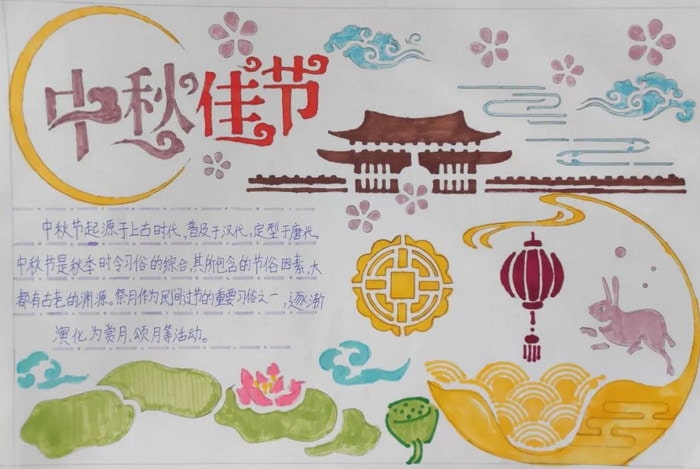 中秋佳节
中秋节起源于上古时代,普及于汉代,定型于唐代。
中秋节是秋季时令习俗的综合,其所包含的节俗因素,大
都有古老的渊源。祭月作为民间过节的重要习俗之一,逐渐
演化为赏月、颂月等活动。